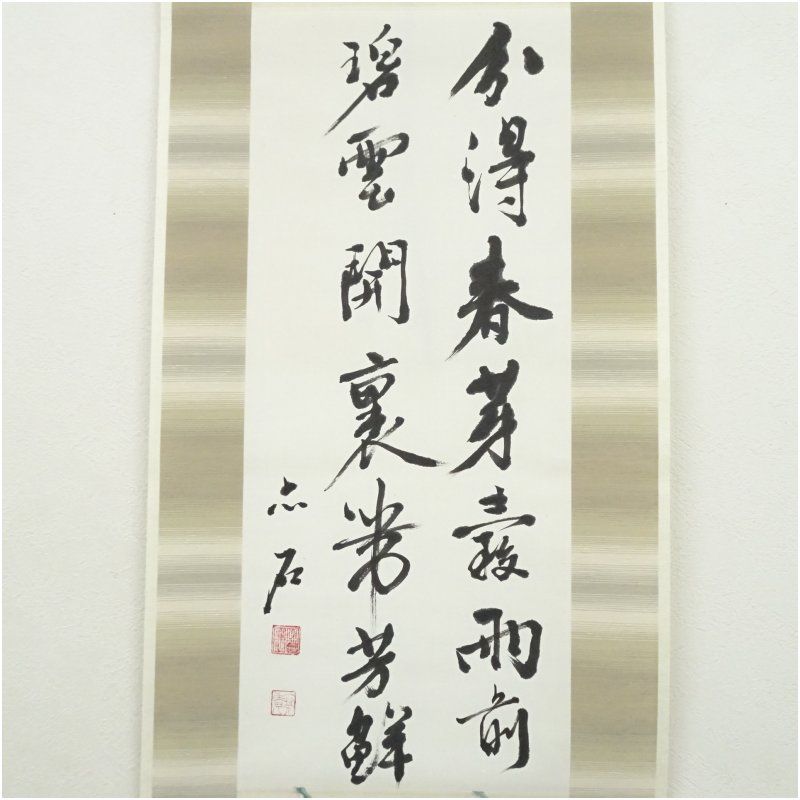 分得春芽穀雨前
碧雲開裏帶芳鮮
石